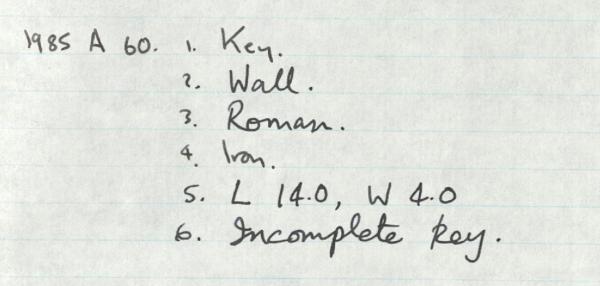 1985 A 60. 1. Key.
2. Wall.
3. Roman.
4. Iron.
5. L 14.0, W 4.0
6. Incomplete key.